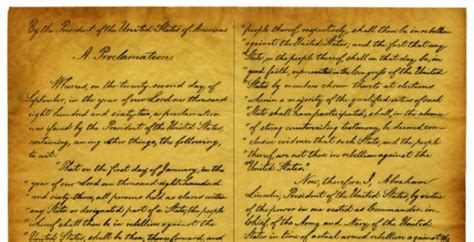 By the President of the United States of America
A Proclamation.
Whereas, on the twenty-second day of
September, in the year of our Lord one thousand
eight hundred and sixty-two, a proclamation
was issued by the President of the United States,
containing, among other things, the following,
to wit:
"That on the first day of January, in the
year of our Lord one thousand eight hundred
and sixty-three, all persons held as slaves within
any State or designated part of a State, the people
whereof shall then be in rebellion against the
United States, shall be then, thenceforward, and
people thereof, respectively, shall then be in rebellion
against the United States; and the fact that any
State, or the people thereof, shall on that day be, in
good faith, represented in the Congress of the United
States by members chosen thereto at elections
wherein a majority of the qualified voters of such
State shall have participated, shall, in the absence
of strong countervailing testimony, be deemed con-
clusive evidence that such State, and the people
thereof, are not then in rebellion against the
United States."
Now, therefore I, Abraham
Lincoln, President of the United States, by virtue
of the power in me vested as Commander-in-
Chief, of the Army and Navy of the United
States in time of actual armed rebellion against